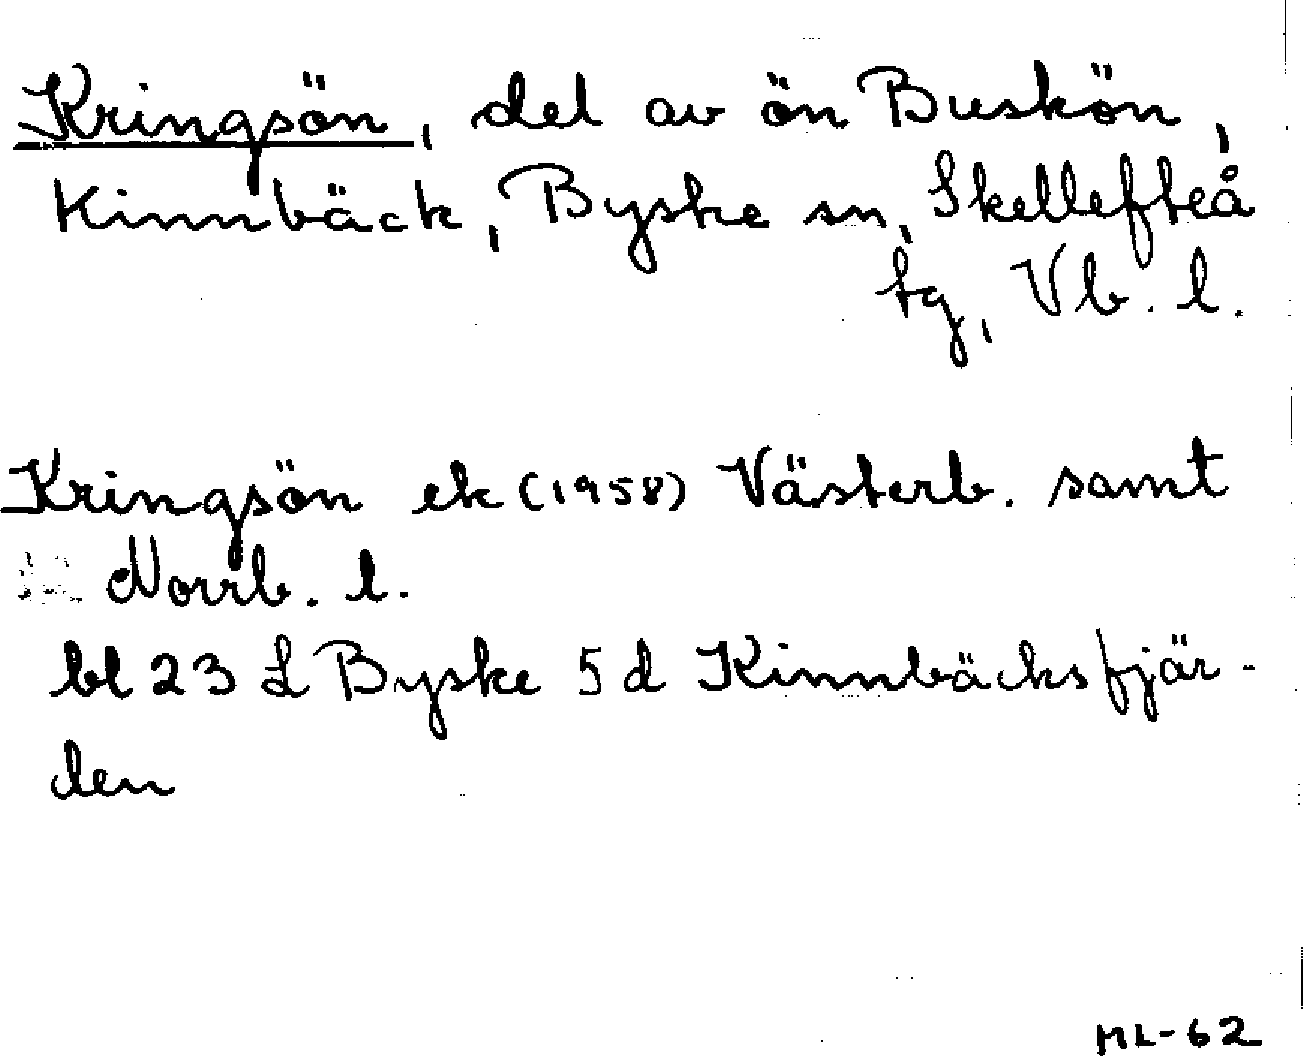 Kringsön, del av ön Buskön,
Kinnbäck, Byske sn, Skellefteå
tg, Vb. l.
Kringsön ek (1958) Västerb. samt
Norrb. l.
bl 23 L Byske 5 d Kinnbäcksfjär-
den
ML-62